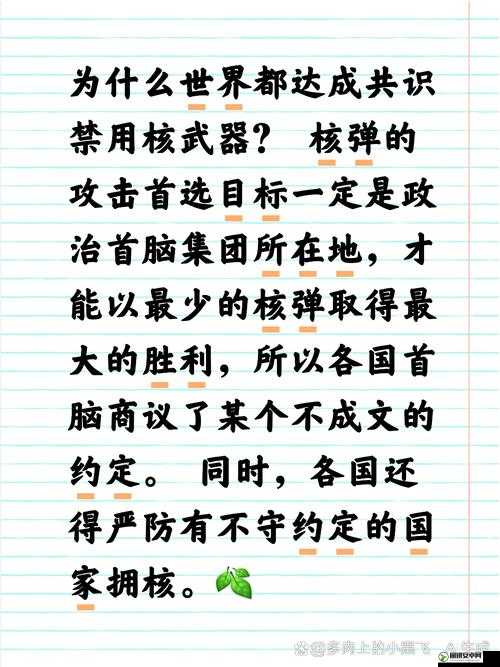 为什么世界都达成共识
禁用核武器？ 核弹的
攻击首选目标一定是政
治首脑集团所在地，才
能以最少的核弹取得最
大的胜利，所以各国首
脑商议了某个不成文的
约定。 同时，各国还
得严防有不守约定的国
家拥核。